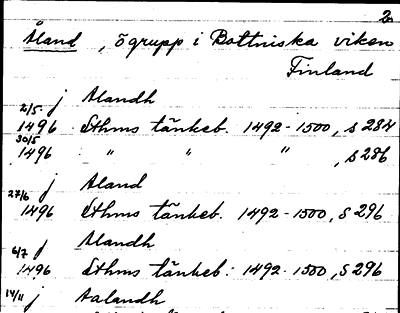 2
Åland, ögrupp i Bottniska viken
Finland
j Alandh
2/5 1496 Sthms tänkeb. 1492-1500, s 284
30/5 1496 " " " , s 286
j Aland
27/6 1496 Sthms tänkeb. 1492-1500, s 296
j Alandh
6/7 1496 Sthms tänkeb: 1492-1500, s 296
14/11 j Aalandh